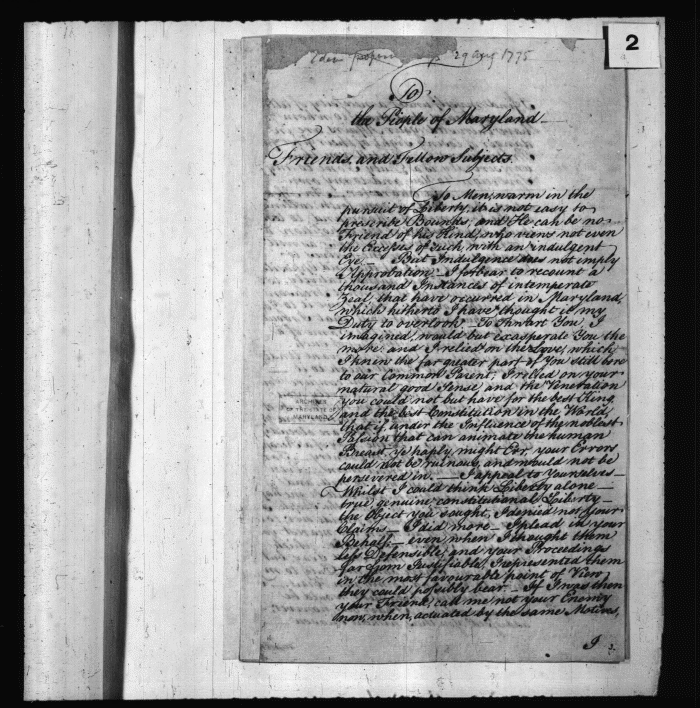 2
29 Aug 1775
To
the People of Maryland
Friends and Fellow Subjects.
To Men, warm in the
pursuit of Liberty, it is not easy to
prescribe Bounds; and He can be no
Friend of his Kind, who views not even
the Excesses of such with an indulgent
Eye. — But Indulgence does not imply
Approbation — I forbear to recount a
thousand Instances of intemperate
Zeal, that have occurred in Maryland,
which hitherto I have thought it my
Duty to overlook. — To thwart You, I
imagined, would but exasperate You the
more: and I relied on the Love, which
I knew the far greater part of You still bore
to our Common Parent; I relied on your
natural good Sense, and the Veneration
you could not but have for the best King
and the best Constitution in the World,
that if under the Influence of the noblest
Passion that can animate the human
Breast, ye haply might Err, your Errors
could not be ruinous, and would not be
persevered in. — I appeal to Yourselves —
Whilst I could think Liberty alone —
true genuine constitutional Liberty —
the Object you sought, I denied not your
Claims — I did more — I plead in your
Behalf — even when I thought them
less Defensible, and your Proceedings
far from Justifiable, I represented them
in the most favourable point of View
they could possibly bear. — If I was then
your Friend, call me not your Enemy
now, when, actuated by the same Motives,
I
ARCHIVES
OF THE STATE OF
MARYLAND